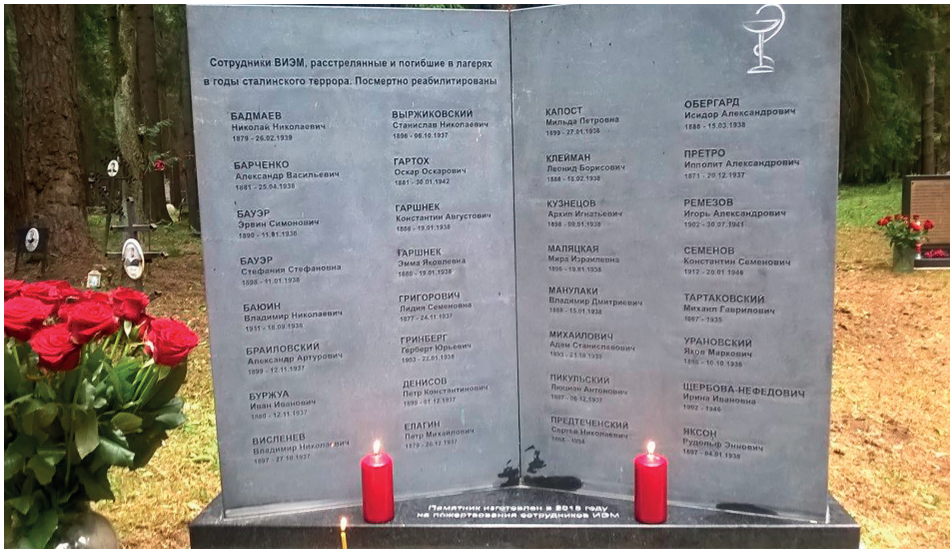 Сотрудники ВИЭМ, расстрелянные и погибшие в лагерях
в годы сталинского террора. Посмертно реабилитированы
БАДМАЕВ
Николай Николаевич
1879 - 26.02.1939
БАРЧЕНКО
Александр Васильевич
1881 - 25.04.1938
БАУЭР
Эрвин Симонович
1890 - 11.01.1938
БАУЭР
Стефания Стефановна
1898 - 11.01.1938
БАЮИН
Владимир Николаевич
1911 - 18.09.1938
БРАИЛОВСКИЙ
Александр Артурович
1899 - 12.11.1937
БУРЖУА
Иван Иванович
1880 - 12.11.1937
ВИСЛЕНЕВ
Владимир Николаевич
1897 - 27.10.1937
ВЫРЖИКОВСКИЙ
Станислав Николаевич
1896 - 06.10.1937
ГАРТОХ
Оскар Оскарович
1881 - 30.01.1942
ГАРШНЕК
Константин Августович
1888 - 19.01.1938
ГАРШНЕК
Эмма Яковлевна
1880 - 19.01.1938
ГРИГОРОВИЧ
Лидия Семеновна
1877 - 24.11.1937
ГРИНБЕРГ
Герберт Юрьевич
1903 - 22.01.1938
ДЕНИСОВ
Петр Константинович
1899 - 01.12.1937
ЕЛАГИН
Петр Михайлович
1879 - 20.12.1937
КАПОСТ
Мильда Петровна
1890 - 27.01.1938
КЛЕЙМАН
Леонид Борисович
1888 - 18.02.1938
КУЗНЕЦОВ
Архип Игнатьевич
1898 - 09.01.1938
МАЛЯЦКАЯ
Мира Израилевна
1896 - 19.01.1938
МАНУЛАКИ
Владимир Дмитриевич
1888 - 15.01.1938
МИХАЙЛОВИЧ
Адам Станиславович
1893 -
ПИКУЛЬСКИЙ
Люциан Антонович
1897 -
ПРЕДТЕЧЕНСКИЙ
Сергей Николаевич
ОБЕРГАРД
Исидор Александрович
1888 - 15.03.1938
ПРЕТРО
Ипполит Александрович
1871 - 20.12.1937
РЕМЕЗОВ
Игорь Александрович
1902 - 30.07.1941
СЕМЕНОВ
Константин Семенович
1912 - 20.01.1946
ТАРТАКОВСКИЙ
Михаил Гаврилович
1867 - 1935
УРАНОВСКИЙ
Яков Маркович
1896 - 10.10.1936
ЩЕРБОВА-НЕФЕДОВИЧ
Ирина Ивановна
1902 - 1946
ЯКСОН
Рудольф Эннович
1892 - 04.01.1938
Памятник изготовлен в 2018 году
на пожертвования сотрудников ИЭМ